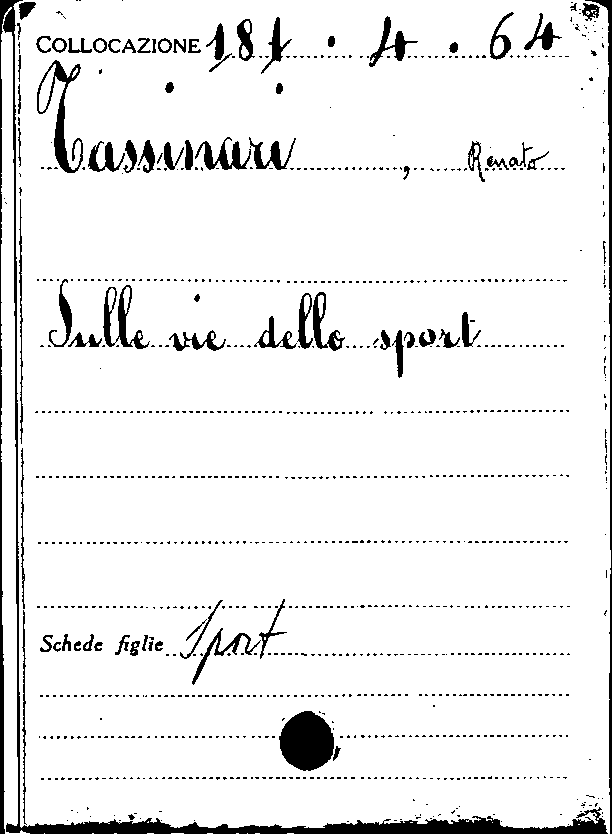 COLLOCAZIONE 181 . 4 . 64
Tassinari , Renato
Sulle vie dello sport
Schede figlie Sport